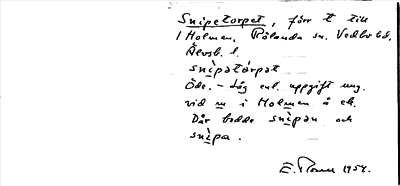 Snipetorpet, förr t till
1 Holmen, Rölanda sn. Vedbo hd,
Älvsb. l.
snipatårpat
Öde. – Låg enl. uppgift ung.
vid m i Holmen å ek.
Där bodde snipan och
snipa.
E. 1954.